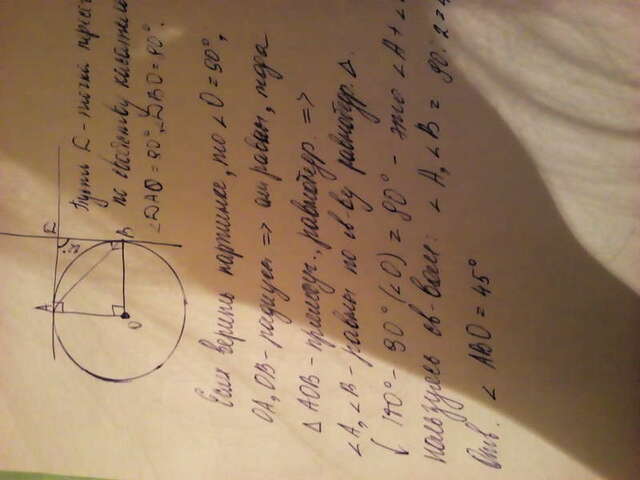 A
D
82°
B
O
Пусть D - точка пересе
по свойству касательн
∠DAO = 90°, ∠DBO = 90°.
Если верить картинке, то ∠O = 90°,
OA, OB - радиусы => они равны, тогда
△ AOB - прямоуг., равнобедр. =>
∠A, ∠B - равны по св-ву равнобедр. △.
( 180° - 90° (∠O) = 90° - это ∠A + ∠
пользуясь св-вом: ∠A, ∠B = 90 : 2 = 4
Отв. ∠ ABO = 45°